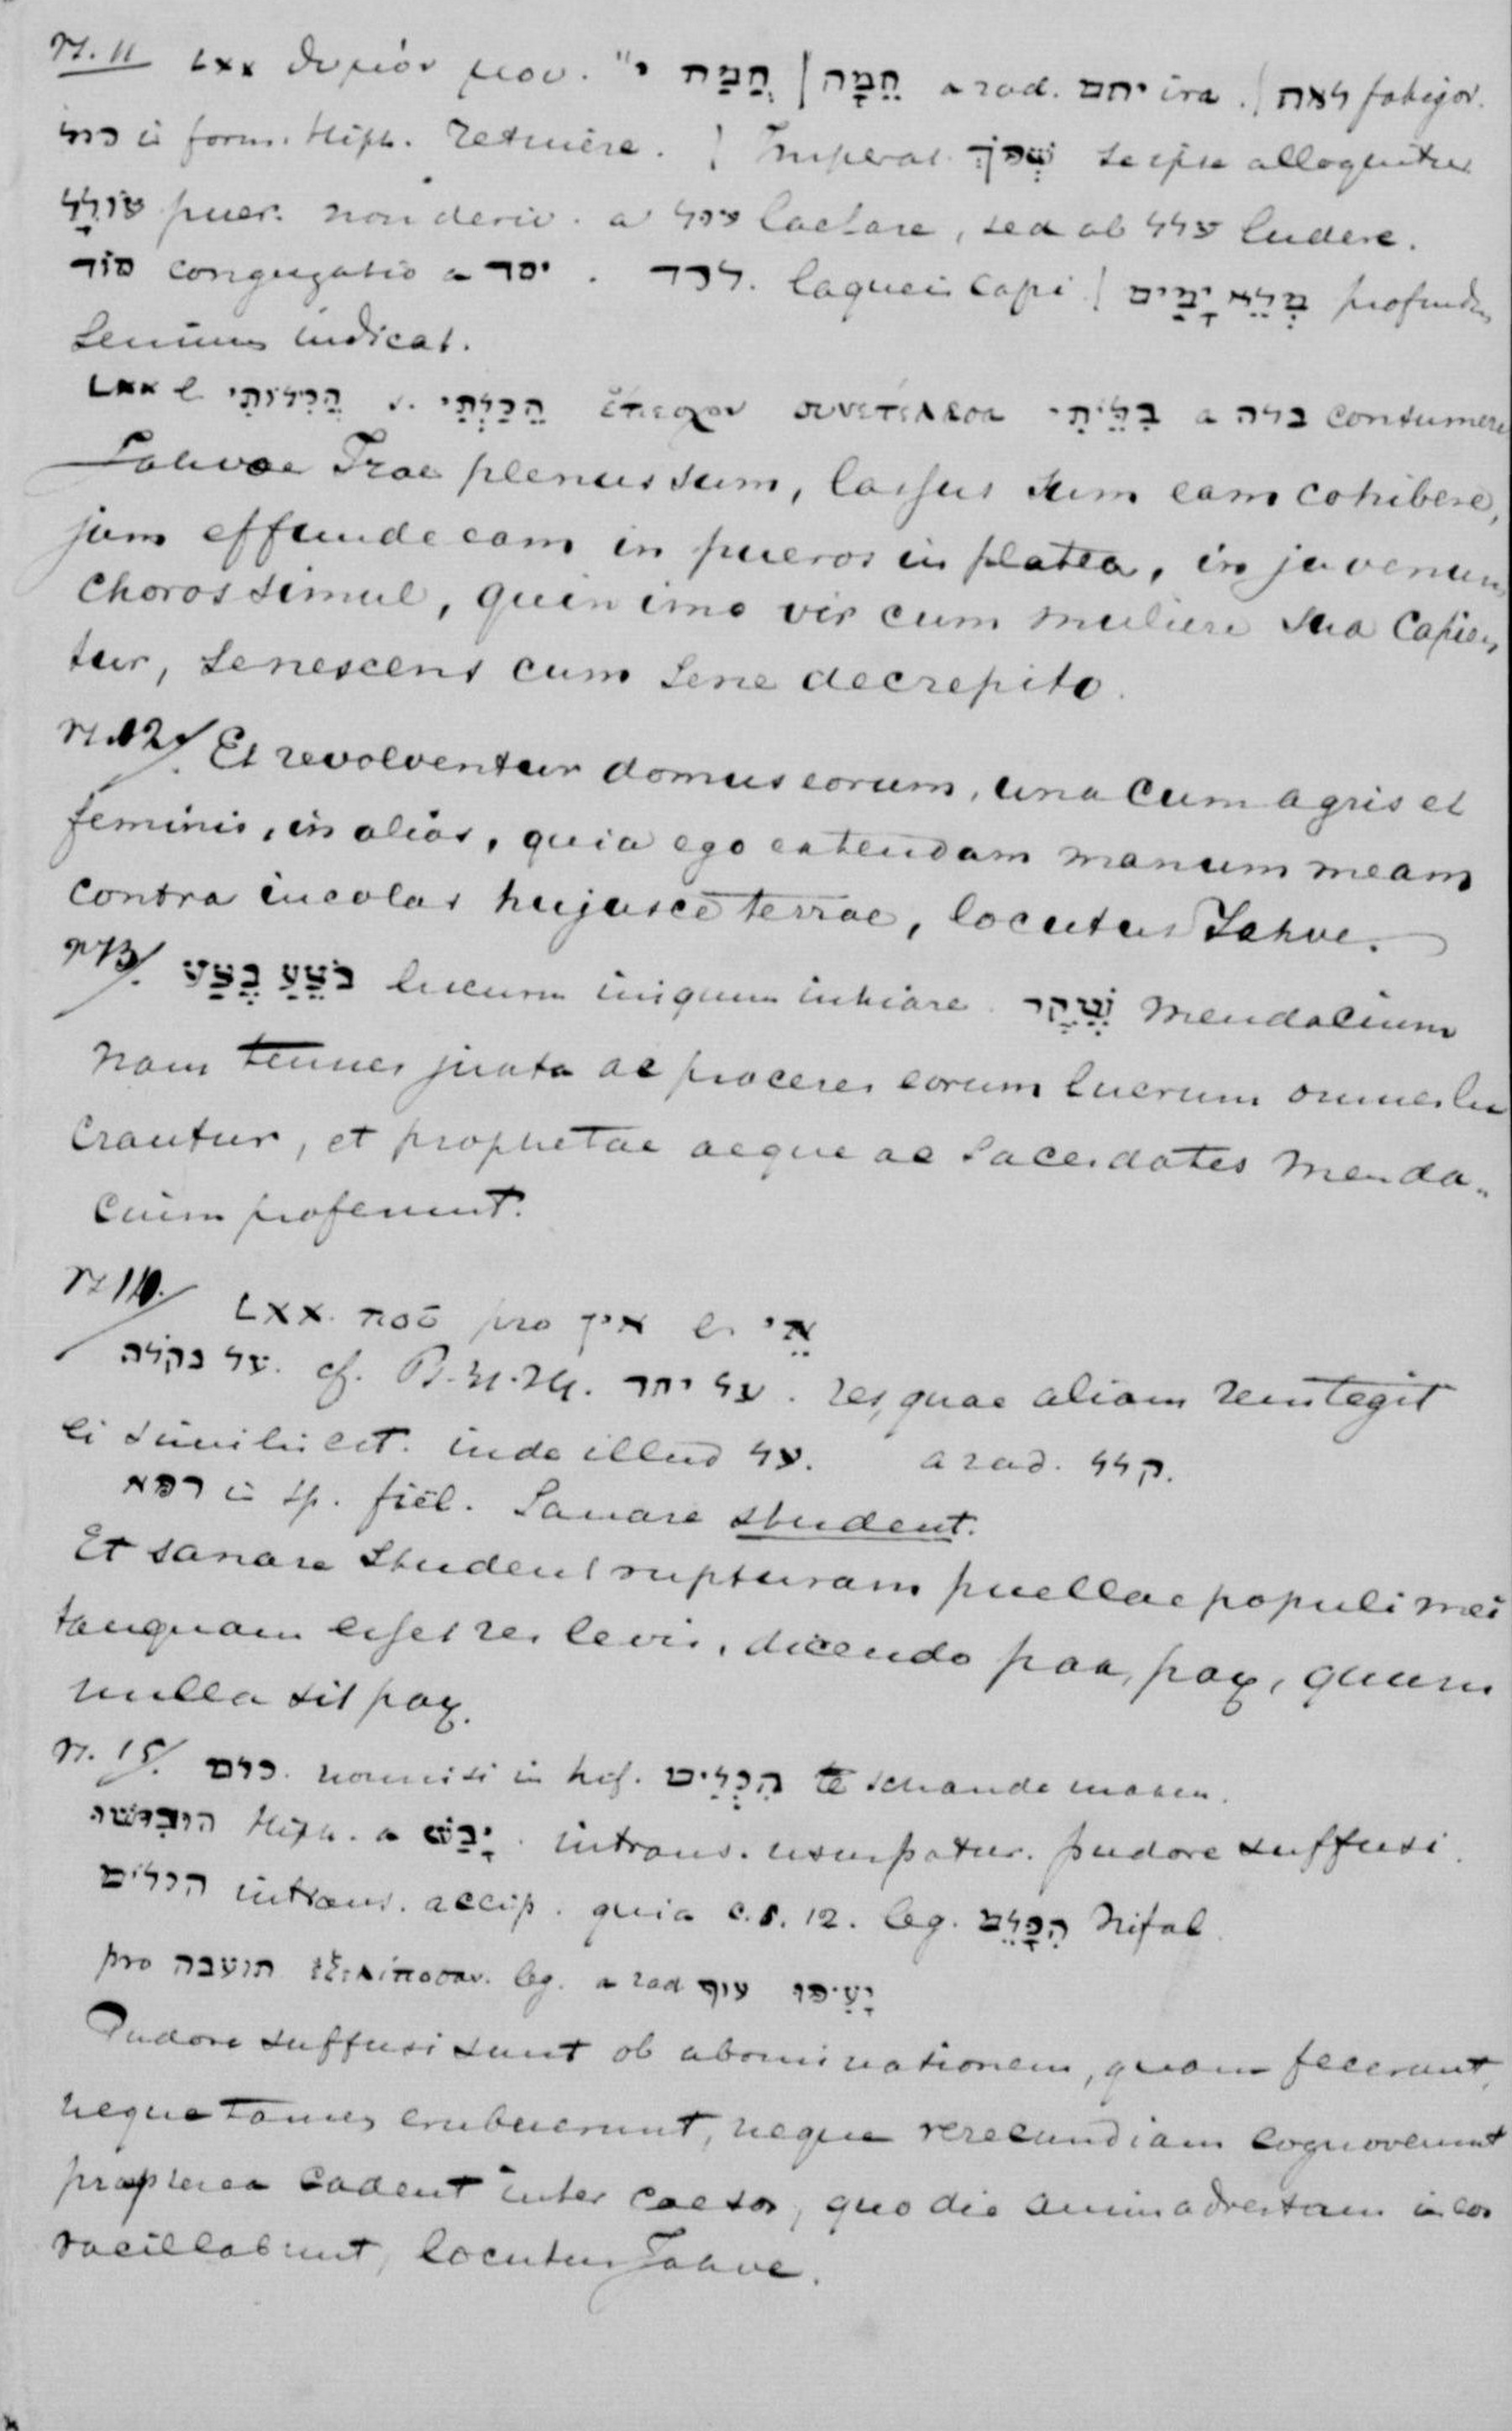 vs. 11 LXX θυμόν μου. חֲמַת י" | חֵמָה a rad. יחם ira. | לאה fatigor.
כול in form. Hiph. retinere. | Imperat. שְׁפֹךְ se ipse alloquitur
עוֹלָל puer. non deriv. a עול lactare, sed ab עלל ludere.
סוד congregatio a יסד . לכד. laqueis capi | מְלֵא יָמִים profundum
senium indicat.
LXX הֲכִילוֹתִי s. הֵכַלְתִּי ἐπέσχον συνετέλεσα כִּלֵּיתִי a כלה consumere
Jahvae Irae plenus sum, lassus sum eam cohibere,
jam effunde eam in pueros in platea, in juvenum
choros simul, quin imo vir cum muliere sua capien
tur, senescens cum sene decrepito.
vs. 12. Et revolventur domus eorum, una cum agris et
feminis, in alios, quia ego extendam manum meam
contra incolas hujusce terrae, locutus Jahve.
vs 13. בֹּצֵעַ בָּצַע lucrum iniquum inhiare. שֶׁקֶר mendacium
Nam tenues juxta ac proceres eorum lucrum omnes lu
crantur, et prophetae aeque ac sacerdotes menda-
cium proferunt.
vs 14. LXX. ποῦ pro אין אֵי
על נקלה. cf. על יתר . res, quae aliam rem tegit
ei similis est. inde illud על. a rad. קלל.
רפא in sp. fiël. Sanare student.
Et sanare student rupturam puellae populi mei
tanquam esset res levis, dicendo pax, pax, quum
nulla sit pax.
vs. 15. כלם. non nisi in hif. הִכְלִים te schande maken.
הובישו Hiph. a יָבֵשׁ. intrans. usurpatur. pudore suffusi.
הכלים intrans. accip. quia c. 8. 12. leg. הִכָּלֵם Nifal.
pro תועבה ἐξελίποσαν. leg. a rad עוף יָעִיפוּ
Pudore suffusi sunt ob abominationem, quam fecerunt,
neque tamen erubuerunt, neque verecundiam cognoverunt
propterea cadent inter caesos, quo die animadvertam in eos
vacillabunt, locutus Jahve.